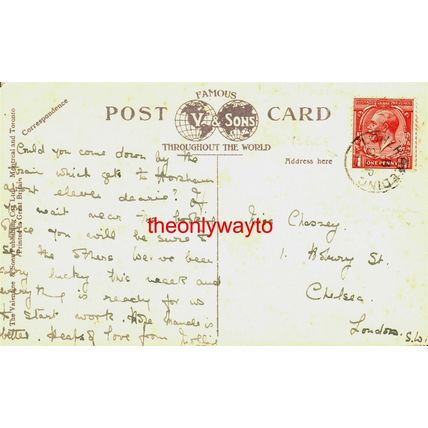 FAMOUS
V. & SONS
POST CARD
THROUGHOUT THE WORLD
Correspondence
Address here
The Valentine & Sons Publishing Co., Ltd., Montreal and Toronto
Printed in Great Britain
ONE PENNY
Could you come down by the
train which gets to Horsham
at eleven dearie? If
wait near the
you will be sure to
the others. We've been
very lucky this week and
everything is ready for us
to start work. Hope is
better. Heaps of love from
Miss Chassey.
1 St.
Chelsea.
London. S.W.
theonlywayto